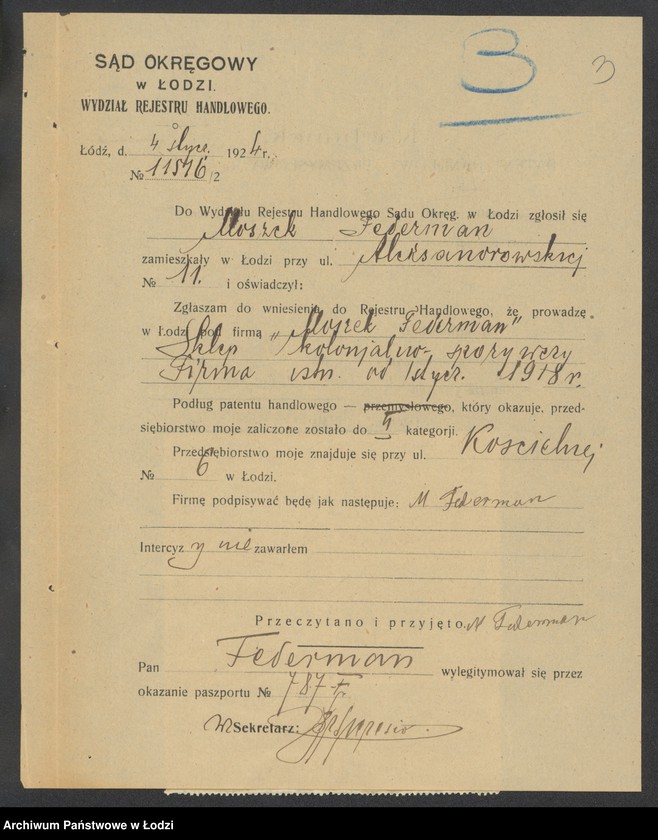 3
3
SĄD OKRĘGOWY
w ŁODZI.
WYDZIAŁ REJESTRU HANDLOWEGO.
Łódź, d. 4 stycz. 1924 r.
№ 11516/2
Do Wydziału Rejestru Handlowego Sądu Okręg. w Łodzi zgłosił się
Moszek Federman
zamieszkały w Łodzi przy ul. Aleksandrowskiej
№ 11. i oświadczył:
Zgłaszam do wniesienia do Rejestru Handlowego, że prowadzę
w Łodzi pod firmą „Moszek Federman"
Sklep kolonjalno-spożywczy
Firma istn. od stycz. 1918 r.
Podług patentu handlowego — przemysłowego, który okazuje, przed-
siębiorstwo moje zaliczone zostało do II kategorji.
Przedsiębiorstwo moje znajduje się przy ul. Kościelnej
№ 6 w Łodzi.
Firmę podpisywać będę jak następuje: M Federman
Intercyzy nie zawarłem
Przeczytano i przyjęto. M Federman
Pan Federman wylegitymował się przez
okazanie paszportu № 787
Sekretarz:
Archiwum Państwowe w Łodzi